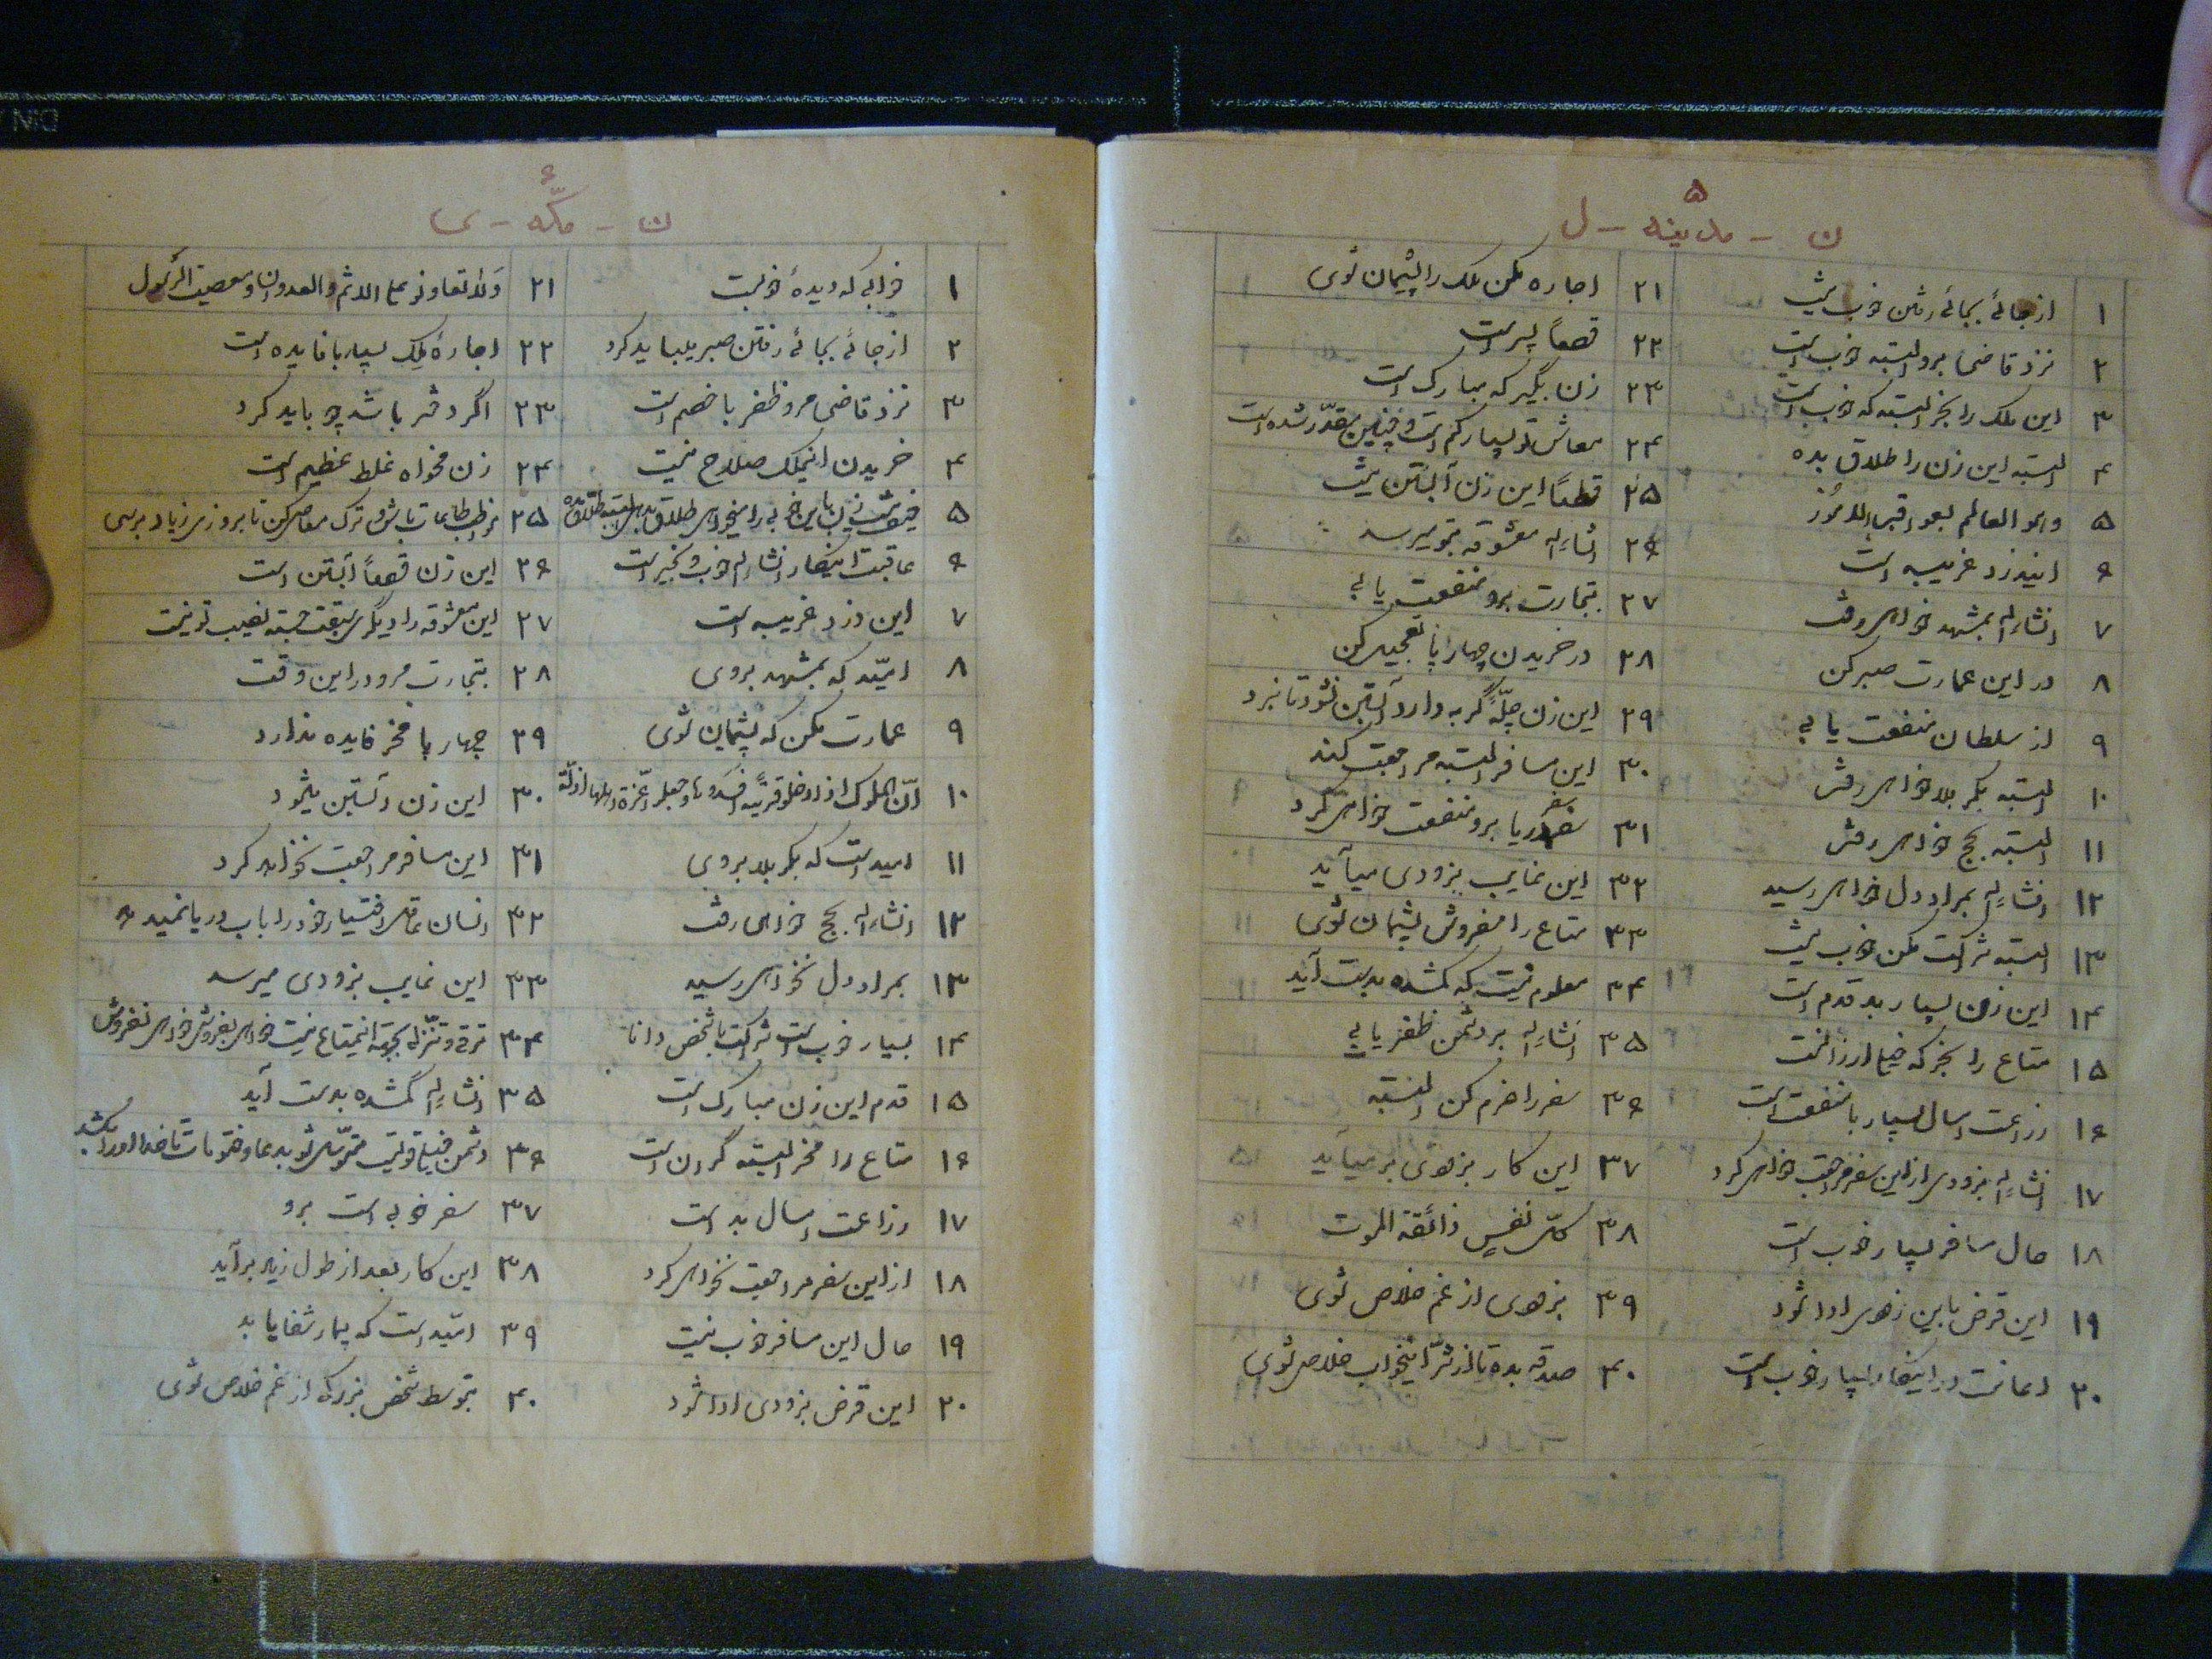 ن - مدینه - ل
۵
۱ از جائی بجائی رفتن خوب نیست
۲ نزد قاضی برو البته خوب است
۳ این ملک را بخر البته که خوب است
۴ البته این زن را طلاق بده
۵ وهو العالم بعواقب الامور
۶ ایندزد غریبه است
۷ انشاءالله بمشهد خواهی رفت
۸ در این عمارت صبر کن
۹ از سلطان منفعت یابی
۱۰ البته بکربلا خواهی رفت
۱۱ البته بحج خواهی رفت
۱۲ انشاءالله بمراد دل خواهی رسید
۱۳ البته شراکت مکن خوب نیست
۱۴ این زن بسیار بد قدم است
۱۵ متاع را بخر که خیلی ارزانست
۱۶ زراعت امسال بسیار با منفعت است
۱۷ انشاءالله بزودی از این سفر مراجعت خواهی کرد
۱۸ حال مسافر بسیار خوب است
۱۹ این قرض باین زودی ادا شود
۲۰ اعانت در اینکار بسیار خوب است
۲۱ اجاره مکن ملک را پشیمان شوی
۲۲ قطعاً پسر است
۲۳ زن بگیر که مبارک است
۲۴ معاش تو بسیار کم است و چنین مقدّر شده است
۲۵ قطعاً این زن آبستن نیست
۲۶ انشاءالله معشوقه بتو میرسد
۲۷ بتجارت برو منفعت یابی
۲۸ در خریدن چهارپا تعجیل کن
۲۹ این زن چلّه گربه دارد آبستن نشود تا نبرد
۳۰ این مسافر البته مراجعت کند
۳۱ سفر دریا برو منفعت خواهی کرد
۳۲ این غایب بزودی میآید
۳۳ متاع را مفروش پشیمان شوی
۳۴ معلوم نیست که گمشده بدست آید
۳۵ انشاءالله بر دشمن ظفر یابی
۳۶ سفر را عزم کن البته
۳۷ این کار بزودی بر میآید
۳۸ کلّ نفس ذائقة الموت
۳۹ بزودی از غم خلاص شوی
۴۰ صدقه بده تا از شرّ اینخواب خلاص شوی
ن - مکّه - ی
۶
۱ خوابی که دیدهٔ خوبست
۲ از جائی بجائی رفتن صبر میباید کرد
۳ نزد قاضی مرو ظفر با خصم است
۴ خریدن اینملک صلاح نیست
۵ زن باین خوبی را میخواهی طلاق بدهی
۶ عاقبت اینکار انشاءالله خوب و بخیر است
۷ این دزد غریبه است
۸ امیّد که بمشهد بروی
۹ عمارت مکن که پشیمان شوی
۱۰ انّ الملوک اذا دخلوا قریةً افسدوها وجعلوا اعزة اهلها اذلّة
۱۱ امید است که بکربلا بروی
۱۲ انشاءالله بحج خواهی رفت
۱۳ بمراد دل نخواهی رسید
۱۴ بسیار خوب است شراکت با شخص دانا
۱۵ قدم این زن مبارک است
۱۶ متاع را مخر البته گران است
۱۷ زراعت امسال بد است
۱۸ از این سفر مراجعت نخواهی کرد
۱۹ حال این مسافر خوب نیست
۲۰ این قرض بزودی ادا شود
۲۱ ولا تعاونوا علی الاثم والعدوان ومعصیت الرسول
۲۲ اجارهٔ ملک بسیار با فایده است
۲۳ اگر دختر باشد چه باید کرد
۲۴ زن مخواه غلط عظیم است
۲۵ مواظب طاعات باش و ترک معاصی کن تا بروزی زیاد برسی
۲۶ این زن قطعاً آبستن است
۲۷ این معشوقه را دیگری سبقت جسته نصیب تو نیست
۲۸ بتجارت مرو در این وقت
۲۹ چهار پا مخر فایده ندارد
۳۰ این زن آبستن میشود
۳۱ این مسافر مراجعت نخواهد کرد
۳۲ انسان عاقل اختیار خود را باب دریا نمیدهد
۳۳ این غایب بزودی میرسد
۳۴ ترقی و تنزّلی بجهة اینمتاع نیست خواهی بفروش خواهی نفروش
۳۵ انشاءالله گمشده بدست آید
۳۶ دشمن خیلی قویست متوسّل شو بدعا و ختومات تا خدا او را بکشد
۳۷ سفر خوبی است برو
۳۸ این کار بعد از طول زیاد برآید
۳۹ امّید است که بیمار شفا یابد
۴۰ بتوسط شخص بزرگ از غم خلاص شوی